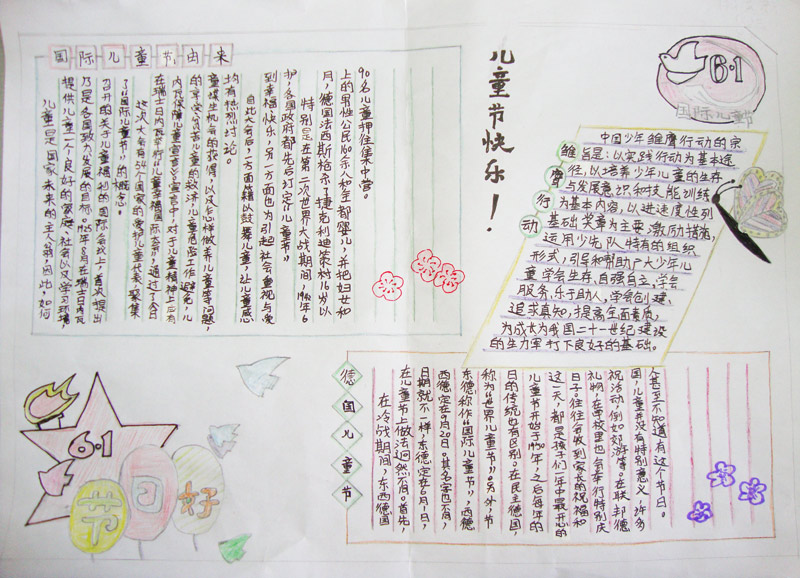 国际儿童节由来
儿童是国家未来的主人翁,因此,如何
提供儿童一个良好的家庭、社会以及学习环境,
乃是各国致力发展的目标。1925年8月在瑞士日内瓦
召开的关于儿童福利的国际会议上,首次提出
了“国际儿童节”的概念。
这次大会有54个国家的爱护儿童代表,聚集
在瑞士日内瓦举行“儿童幸福国际大会”,通过了《日
内瓦保障儿童宣言》宣言中,对于儿童精神上应有
的享受、贫苦儿童的救济、儿童危险工作避免、儿
童谋生机会的获得,以及怎样做养儿童等问题,
均有热烈讨论。
自此大会后,一方面藉以鼓舞儿童,让儿童感
到幸福、快乐,另一方面也为引起社会重视与爱
护,各国政府都先后订定“儿童节”
特别是在第二次世界大战期间,1942年6
月,德国法西斯枪杀了捷克利迪策村16岁以
上的男性公民160余人和全部婴儿,并把妇女和
90名儿童押往集中营。
儿童节快乐!
6·1
国际儿童节
雏鹰行动
中国少年雏鹰行动的宗
旨是:以实践行动为基本途
径,以培养少年儿童的生存
与发展意识和技能训练
为基本内容,以进速度性列
基础奖章为主要激励措施,
运用少先队特有的组织
形式,引导和帮助广大少年儿
童学会生存,自强自主,学会
服务,乐于助人,学会创建,
追求真知,提高全面素质,
为成长为我国二十一世纪建设
的生力军打下良好的基础。
6·1
节日好
德国儿童节
在冷战期间,东西德国
在儿童节上做法迥然不同,首先,
日期就不一样,东德定在6月1日,
西德定在9月20日。其名字也不同,
东德称作“国际儿童节”,西德
称为“世界儿童节”。另外,节
日的传统也有区别。在民主德国,
儿童节开始于1950年,之后每年的
这一天,都是孩子们一年中最开心的
日子。往往会收到家长的祝福和
礼物,在学校里也会举行特别庆
祝活动例如郊游等。在联邦德
国,儿童节并没有特别意义,许多
人甚至不知道有这个节日。